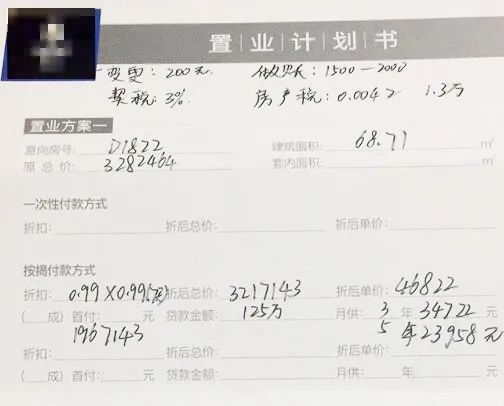 置业计划书
变更：200元． 做贷：1500－2000
契税：3% 房产税：0.0042 1.3万
置业方案一
意向房号：D1822 建筑面积：68.71 m²
原总价：3282464 套内面积： m²
一次性付款方式
折扣： 折后总价： 折后单价：
按揭付款方式
折扣：0.99×0.99 折后总价：3217143 折后单价：46822
（ 成）首付：1967143 元 贷款金额：125万 月供：3年34722元
5年23958元
折扣： 折后总价： 折后单价：
（ 成）首付： 元 贷款金额： 月供： 年 元